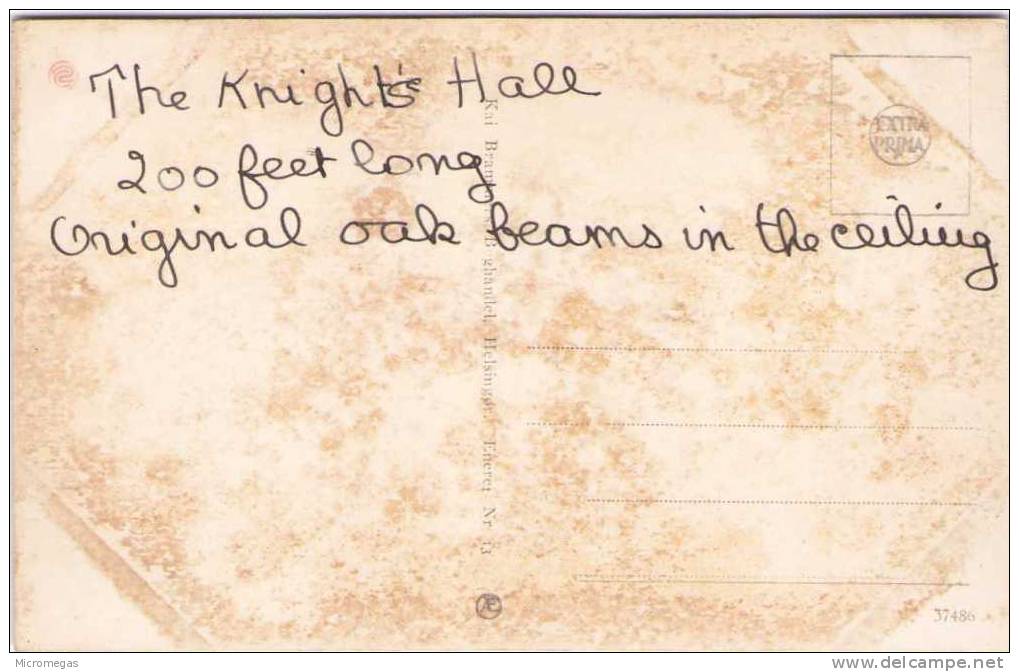 The Knight's Hall
200 feet long
Original oak beams in the ceiling
EXTRA
PRIMA
Kai Helsingør. Eneret Nr 13
37486
Micromegas
www.delcampe.net